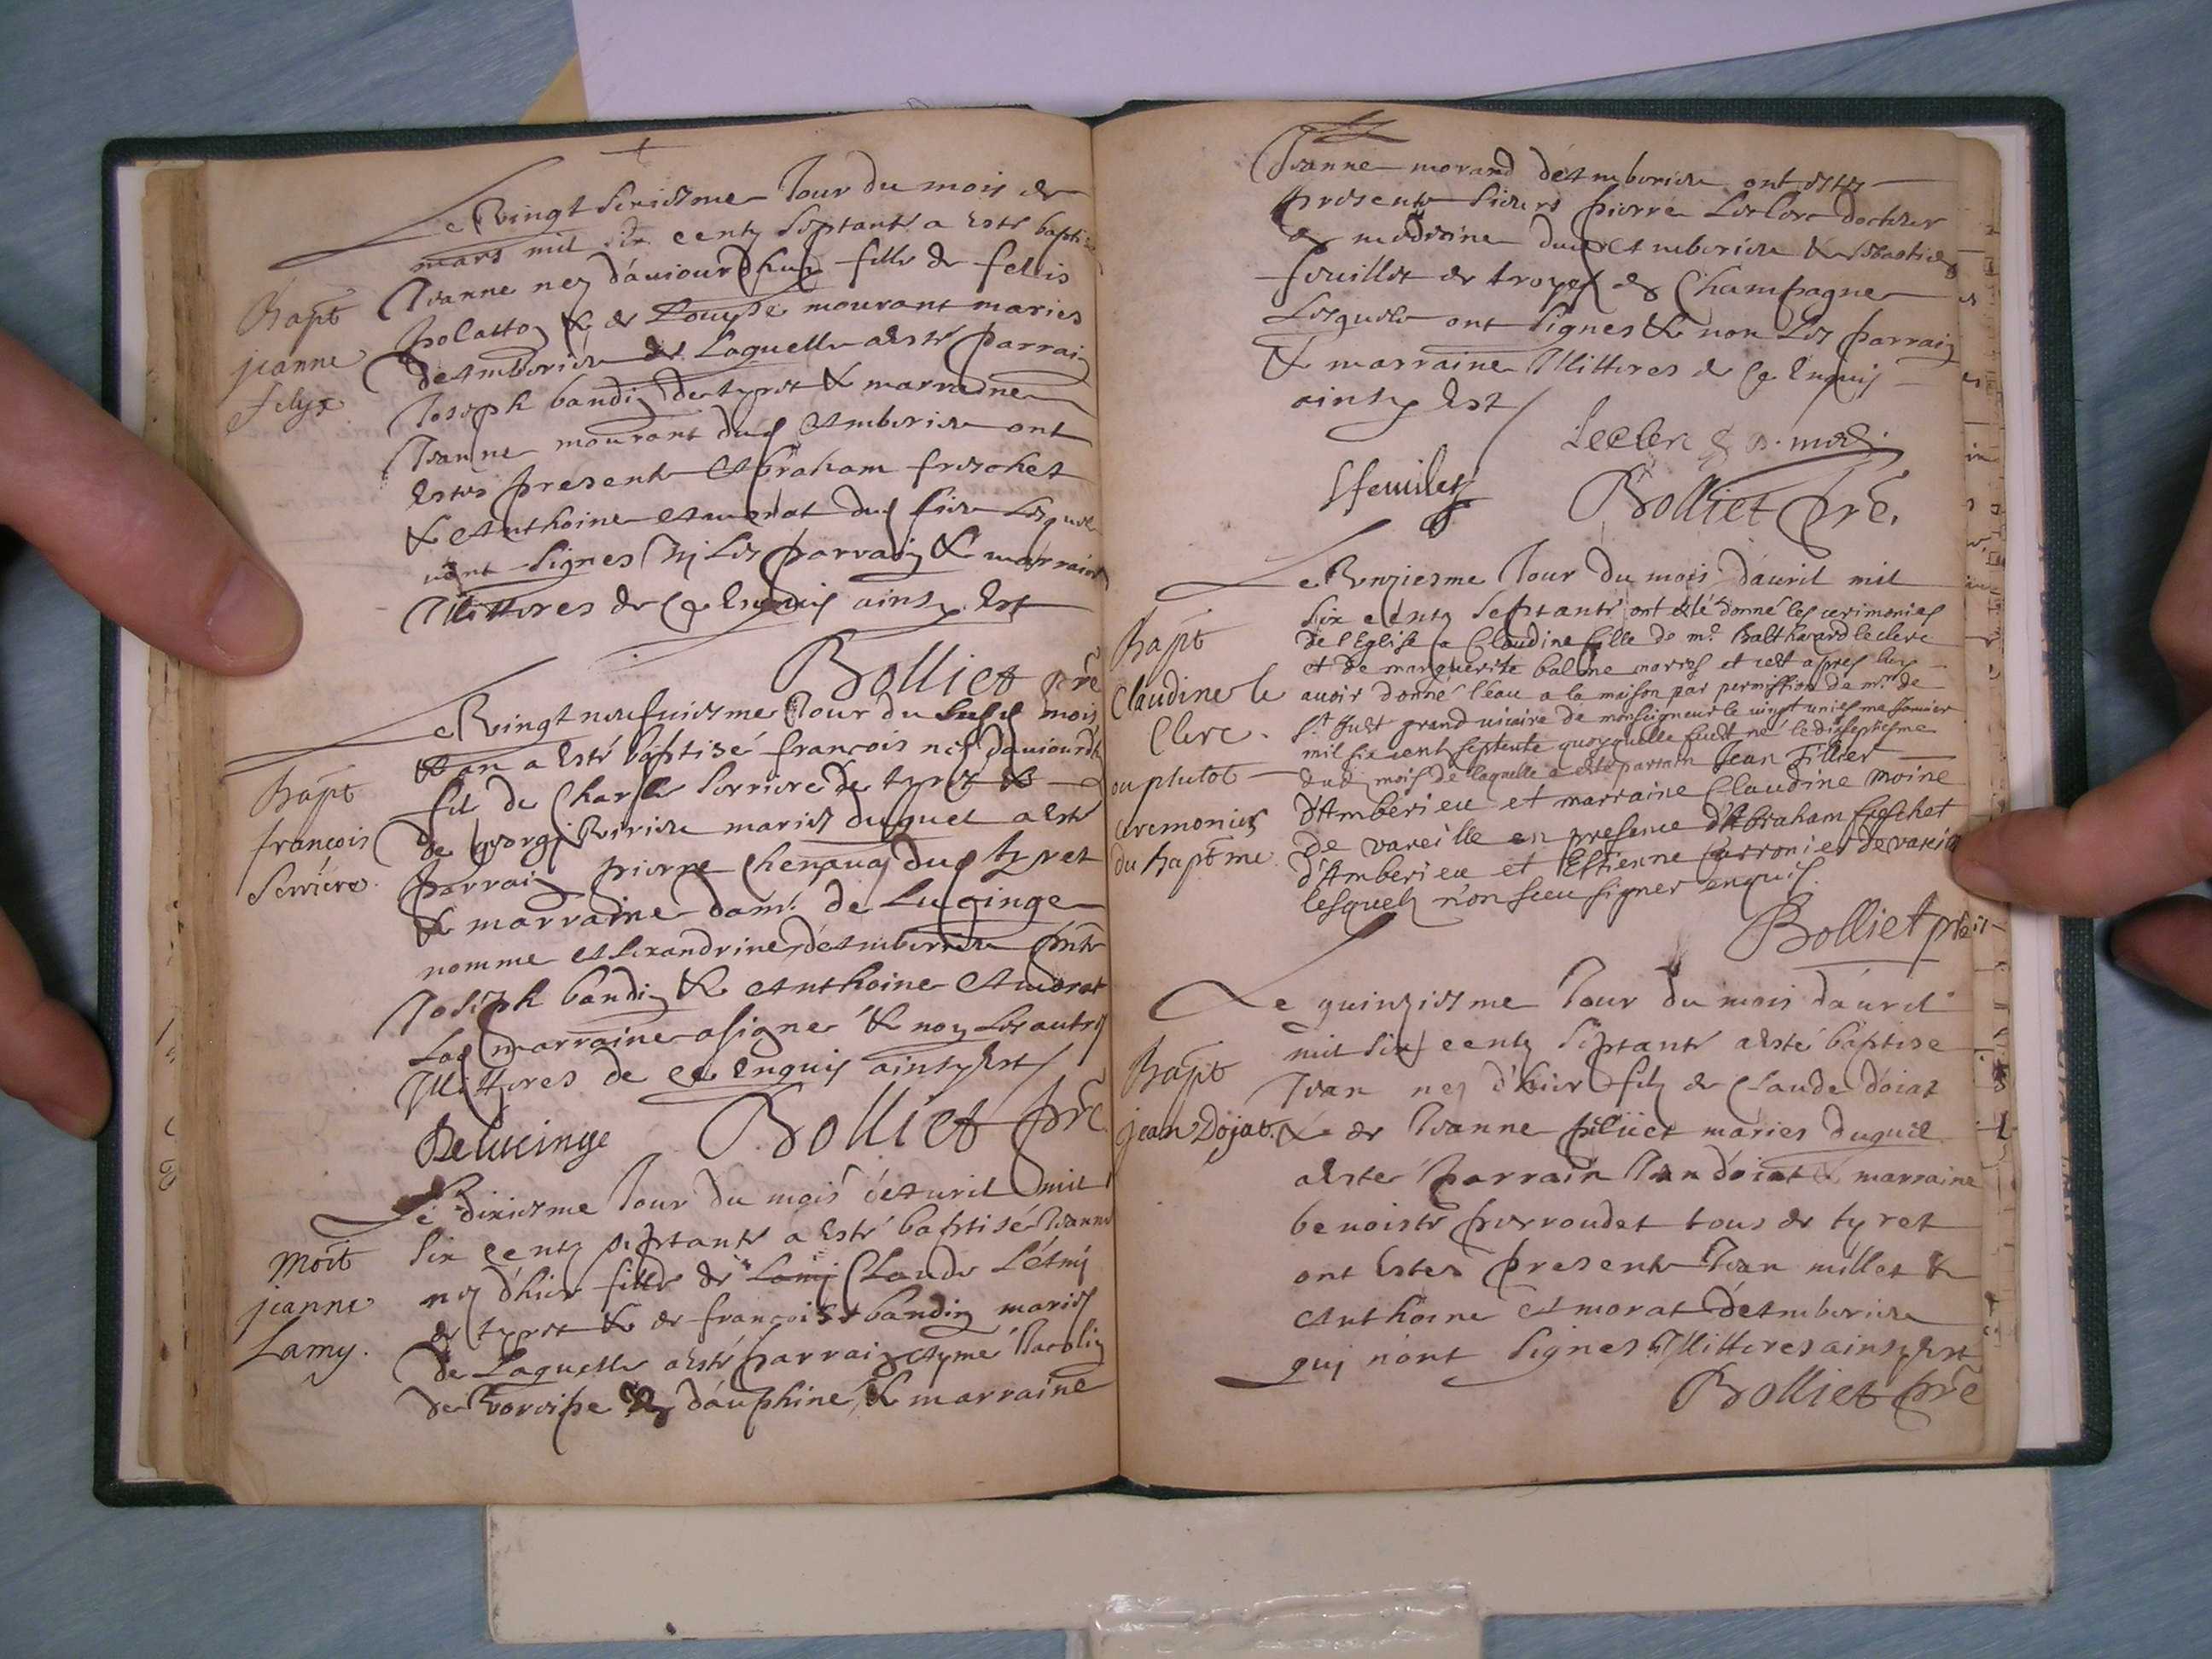 Le Vingt seiziesme Jour du mois de
mars mil six centz septante a esté baptisé
Jeanne née d'aujourdhuy fille de felis
& de Louyse mourant maries
d'Amberieu de Laquelle a esté parrain
Joseph bandin de tyret & marraine
Jeanne mourant dud Amberieu ont
estes presents Abraham freschet
& Anthoine Amorat dud lieu Lesquels
nont signes ny Les parrain & marraine
Illitteres de ce enquis ainsy est
Bolliet pre
Bapt
jeanne
felyx
Le Vingt neufuiesme Jour du susd mois
& an a esté baptisé françois né d'aujourdh
fil de Charle Serriere de tyret &
de mariés duquel a esté
parrain pierre Chenauaz dud tyret
& marraine dam. de Lucinge
nomme Alexandrine d'Amberieu pnts
Joseph bandin & Anthoine Amorat
Lad marraine a signé & non Les autres
Illitteres de ce enquis ainsy est
Delucinge Bolliet pre
Bapt
françois
Serriere.
Le dixiesme Jour du mois d'Auril mil
six centz septante a esté baptisé Jeanne
née d'hier fille de Lamy Claude L'Amy
de tyret & de françoise bandin mariés
de Laquelle a esté parrain Aymé
de en dauphiné & marraine
Mort
jeanne
Lamy.
Jeanne morand d'Amberieu ont estes
presents Sieurs pierre Leclerc docteur
en medecine dud Amberieu & Sebastien
feuillet de troyes en Champagne
Lesquels ont signes & non Les parrain
& marraine Illitteres de ce enquis
ainsy est
Leclerc D. med.
Sfeuillet Bolliet pre.
Le Vnziesme Jour du mois d'auril mil
six centz septante ont esté donné les ceremonies
de l'Eglise a Claudine fille de mr. Balthazard leclerc
et de marguerite balme mariés et cest apres luy
auoir donné l'eau a la maison par permission de mr. de
St. Just grand vicaire de monseigneur le vingt uniesme Januier
mil six cent septente quoyquelle fust né le disseptiesme
dud mois de laquelle a esté parrain Jean Tillier
d'Amberieu et marraine Claudine Moine
de vareille en presence d'Abraham freschet
d'Amberieu et Estienne Carronier de vareille
lesquels n'on sceu signer enquis.
Bolliet pre
Bapt
Claudine le
Clerc.
ou plutot
ceremonies
du Baptme.
Le quinziesme Jour du mois d'auril
mil six centz septante a esté baptise
Jean né d'hier filz de Claude doiat
& de Jeanne pilliet maries duquel
a esté parrain Jean doiat & marraine
benoiste perroudet tous de tyret
ont estes presents Jean millet &
Anthoine Amorat d'Amberieu
qui n'ont signes Illitteres ainsy est
Bolliet pre
Bapt
jean Dojat.